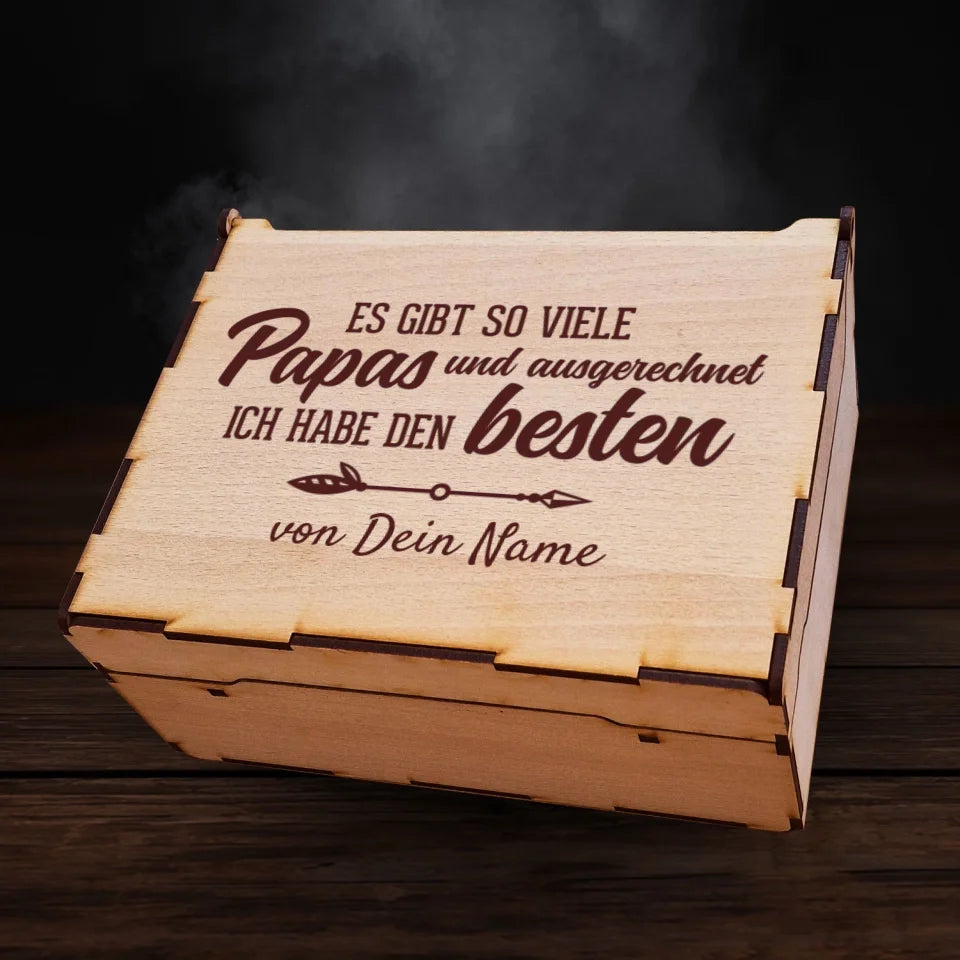 ES GIBT SO VIELE
Papas und ausgerechnet
ICH HABE DEN besten
von Dein Name